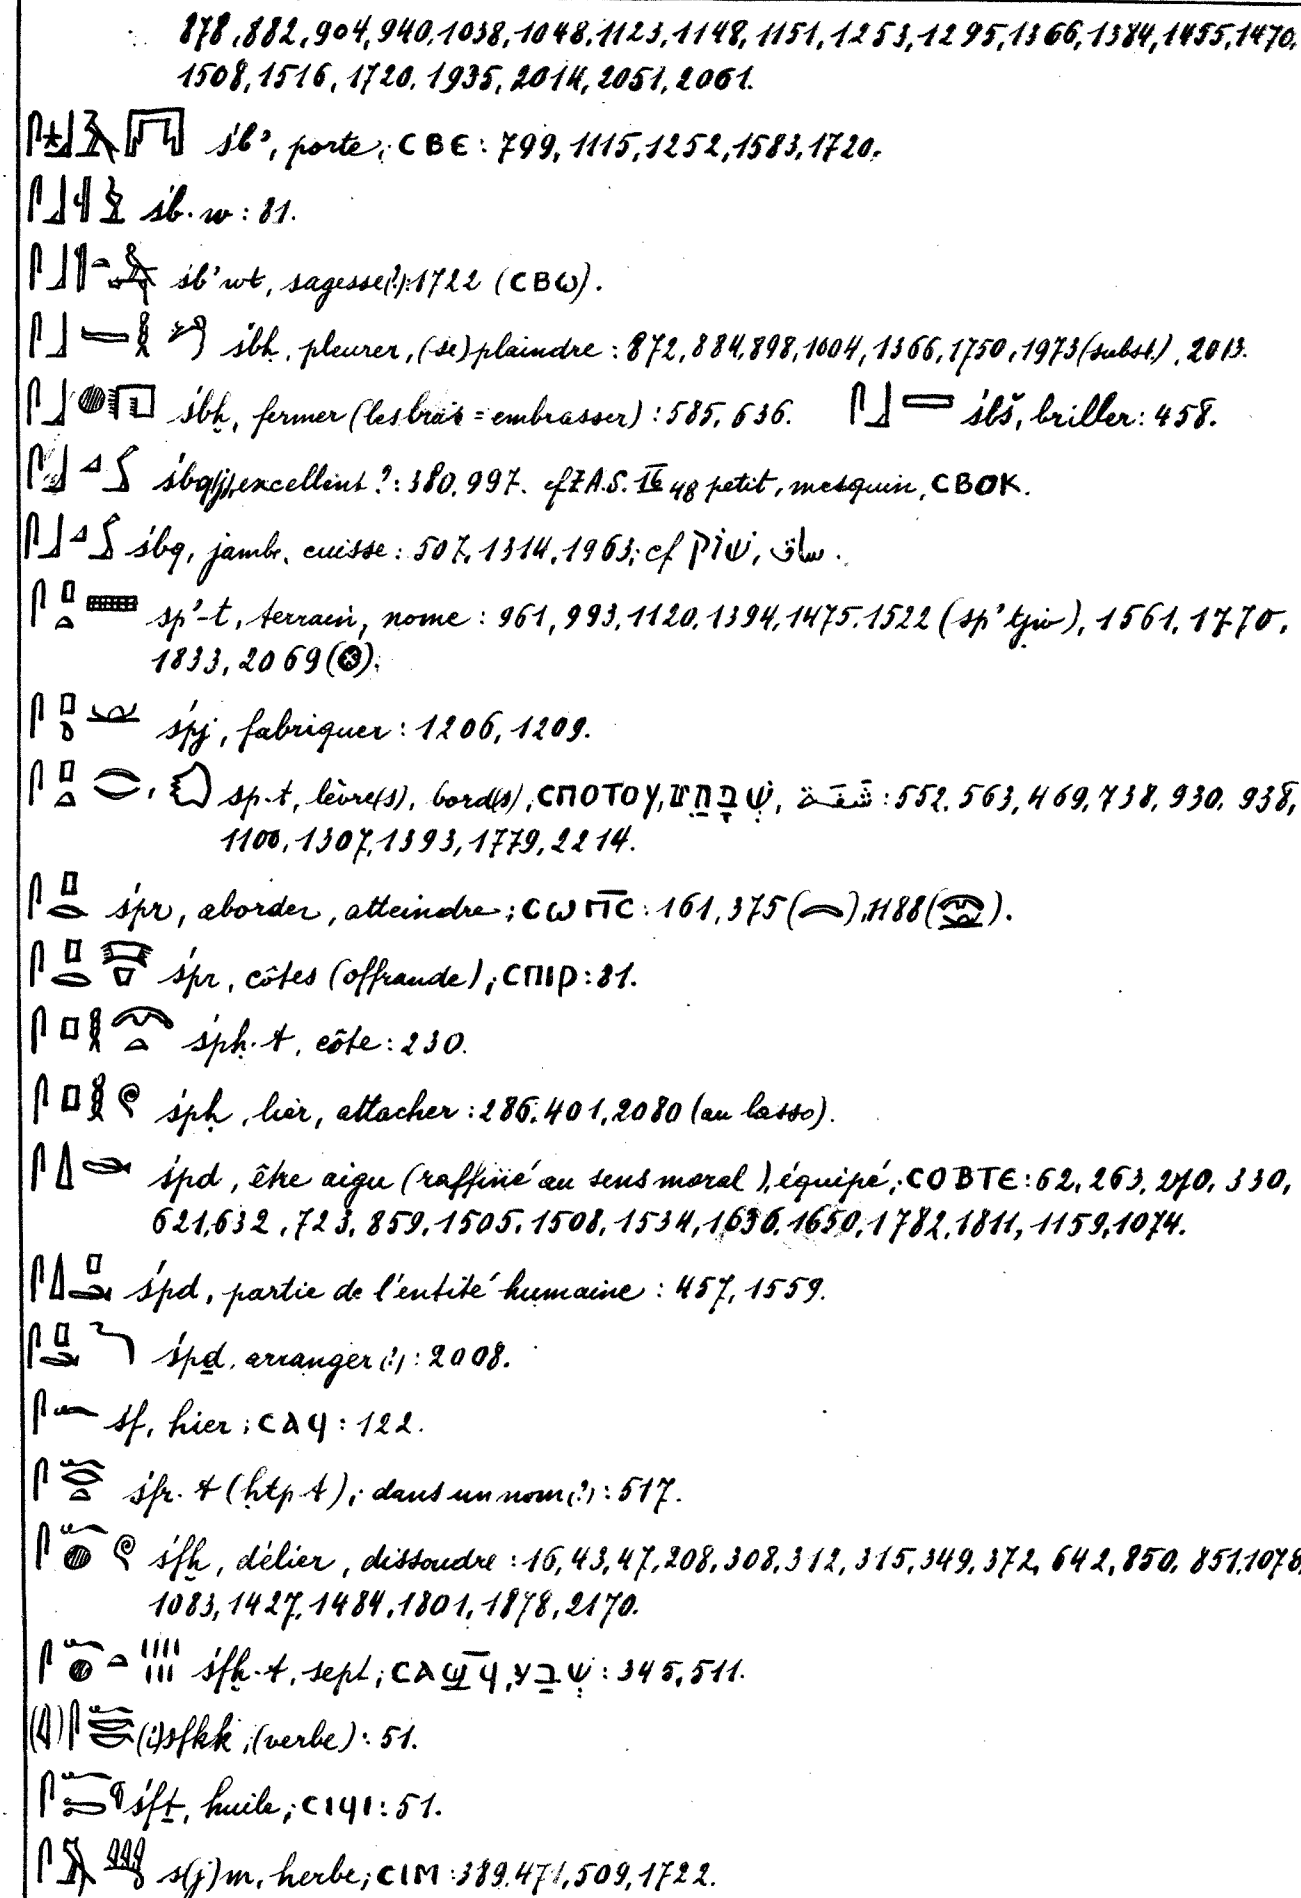 878, 882, 904, 940, 1038, 1048, 1123, 1148, 1151, 1253, 1295, 1366, 1384, 1455, 1470,
1508, 1516, 1720, 1935, 2014, 2051, 2061.
śb', porte, ⲤⲂⲈ : 799, 1115, 1252, 1583, 1720.
śb·w : 81.
śb'wt, sagesse(?) : 1722 (ⲤⲂⲰ).
śbḥ, pleurer, (se) plaindre : 872, 884, 898, 1004, 1366, 1750, 1973 (subst.), 2013.
śbḫ, fermer (les bras = embrasser) : 585, 636. śbš, briller : 458.
śbq(j), excellent ? : 380, 997. cf Z.A.S. 48 petit, mesquin, ⲤⲂⲞⲔ.
śbq, jambe, cuisse : 507, 1314, 1963; cf שׁוֹק, ساق.
sp'-t, terrain, nome : 961, 993, 1120, 1394, 1475, 1522 (sp'tjw), 1561, 1770,
1833, 2069 (𓊖).
śpj, fabriquer : 1206, 1209.
sp·t, lèvre(s), bord(s), ⲤⲠⲞⲦⲞⲨ, شفة : 552, 563, 469, 738, 930, 938,
1100, 1307, 1393, 1779, 2214.
śpr, aborder, atteindre; ⲤⲰⲠ̅Ⲥ̅ : 161, 375 (), 1188 ().
śpr, côtes (offrande); ⲤⲠⲒⲢ : 81.
śpḥ·t, côte : 230.
śpḥ, lier, attacher : 286, 401, 2080 (au lasso).
śpd, être aigu (raffiné au sens moral), équipé; ⲤⲞⲂⲦⲈ : 62, 263, 270, 330,
621, 632, 723, 859, 1505, 1508, 1534, 1636, 1650, 1782, 1811, 1159, 1074.
śpd, partie de l'entité humaine : 457, 1559.
śpḏ, arranger (?) : 2008.
sf, hier; ⲤⲀϤ : 122.
śfr·t (ḥtp·t); dans un nom (?) : 517.
śfḫ, délier, dissoudre : 16, 43, 47, 208, 308, 312, 315, 349, 372, 642, 850, 851, 1078,
1083, 1427, 1484, 1801, 1878, 2170.
śfḫ·t, sept; ⲤⲀϢ̅Ϥ̅, שְׁבַע : 345, 511.
(i)sfkk, (verbe) : 51.
śfṯ, huile; ⲤⲒϤⲒ : 51.
s(j)m, herbe; ⲤⲒⲘ : 389, 471, 509, 1722.